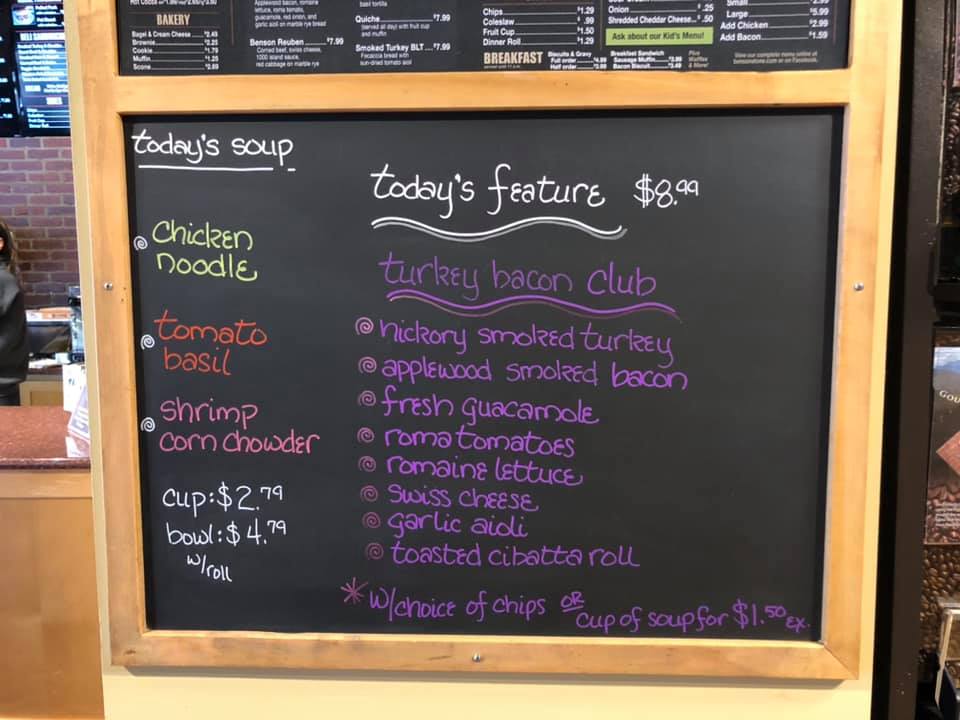 BAKERY
Bagel & Cream Cheese $2.49
Brownie $2.25
Cookie $1.79
Muffin $1.25
Scone $2.89
Applewood bacon, romaine
lettuce, roma tomato,
guacamole, red onion, and
garlic aioli on marble rye bread
Benson Reuben $7.99
Corned beef, swiss cheese,
1000 island sauce,
red cabbage on marble rye
basil tortilla
Quiche $7.99
(served all day) with fruit cup
and muffin
Smoked Turkey BLT $7.99
Focaccia bread with
sun-dried tomato aioli
Chips $1.29
Coleslaw $ .99
Fruit Cup $1.50
Dinner Roll $1.29
BREAKFAST
Biscuits & Gravy
Full order
Half order
Onion $ .25
Shredded Cheddar Cheese $ .50
Ask about our Kid's Menu!
Breakfast Sandwich
Sausage Muffin
Bacon Biscuit
Plus
Waffles
& More!
Small
Large $5.99
Add Chicken $2.99
Add Bacon $1.59
View our complete menu online at
or on Facebook.
today's soup
chicken
noodle
tomato
basil
shrimp
corn chowder
cup: $2.79
bowl: $4.79
w/roll
today's feature $8.99
turkey bacon club
hickory smoked turkey
applewood smoked bacon
fresh guacamole
roma tomatoes
romaine lettuce
swiss cheese
garlic aioli
toasted cibatta roll
* w/choice of chips OR cup of soup for $1.50 ex.